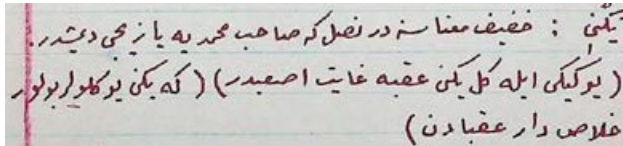 یكنی : خفیف معناسنه در نصل كه صاحب محمدیه یازیجی دیمشدر.
(یوكیكی ایله كل یكن عقبه غایت اصعبدر) (كه یكن یوكلولر بولور
خلاص دار عقبادن)